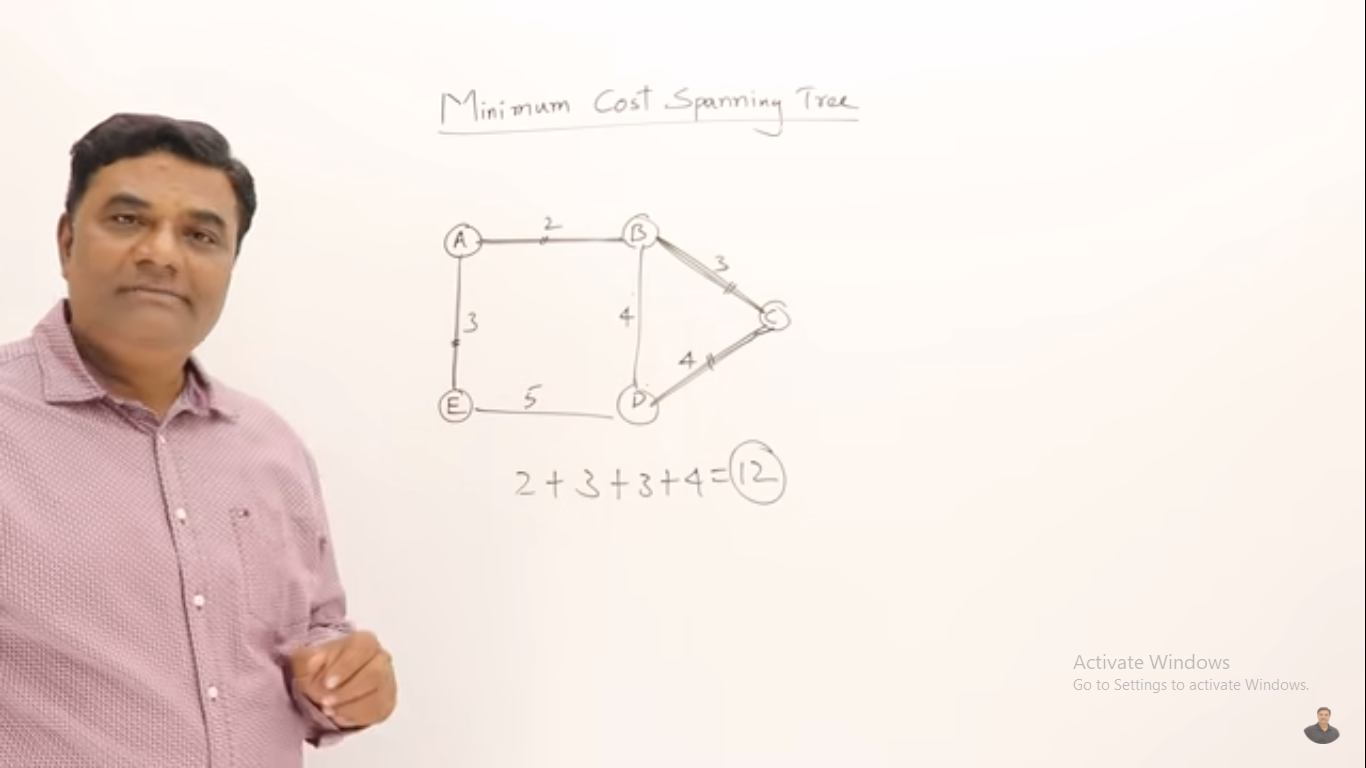 Minimum Cost Spanning Tree
A 2 B
3 C
3 4
4
E 5 D
2 + 3 + 3 + 4 = 12
Activate Windows
Go to Settings to activate Windows.